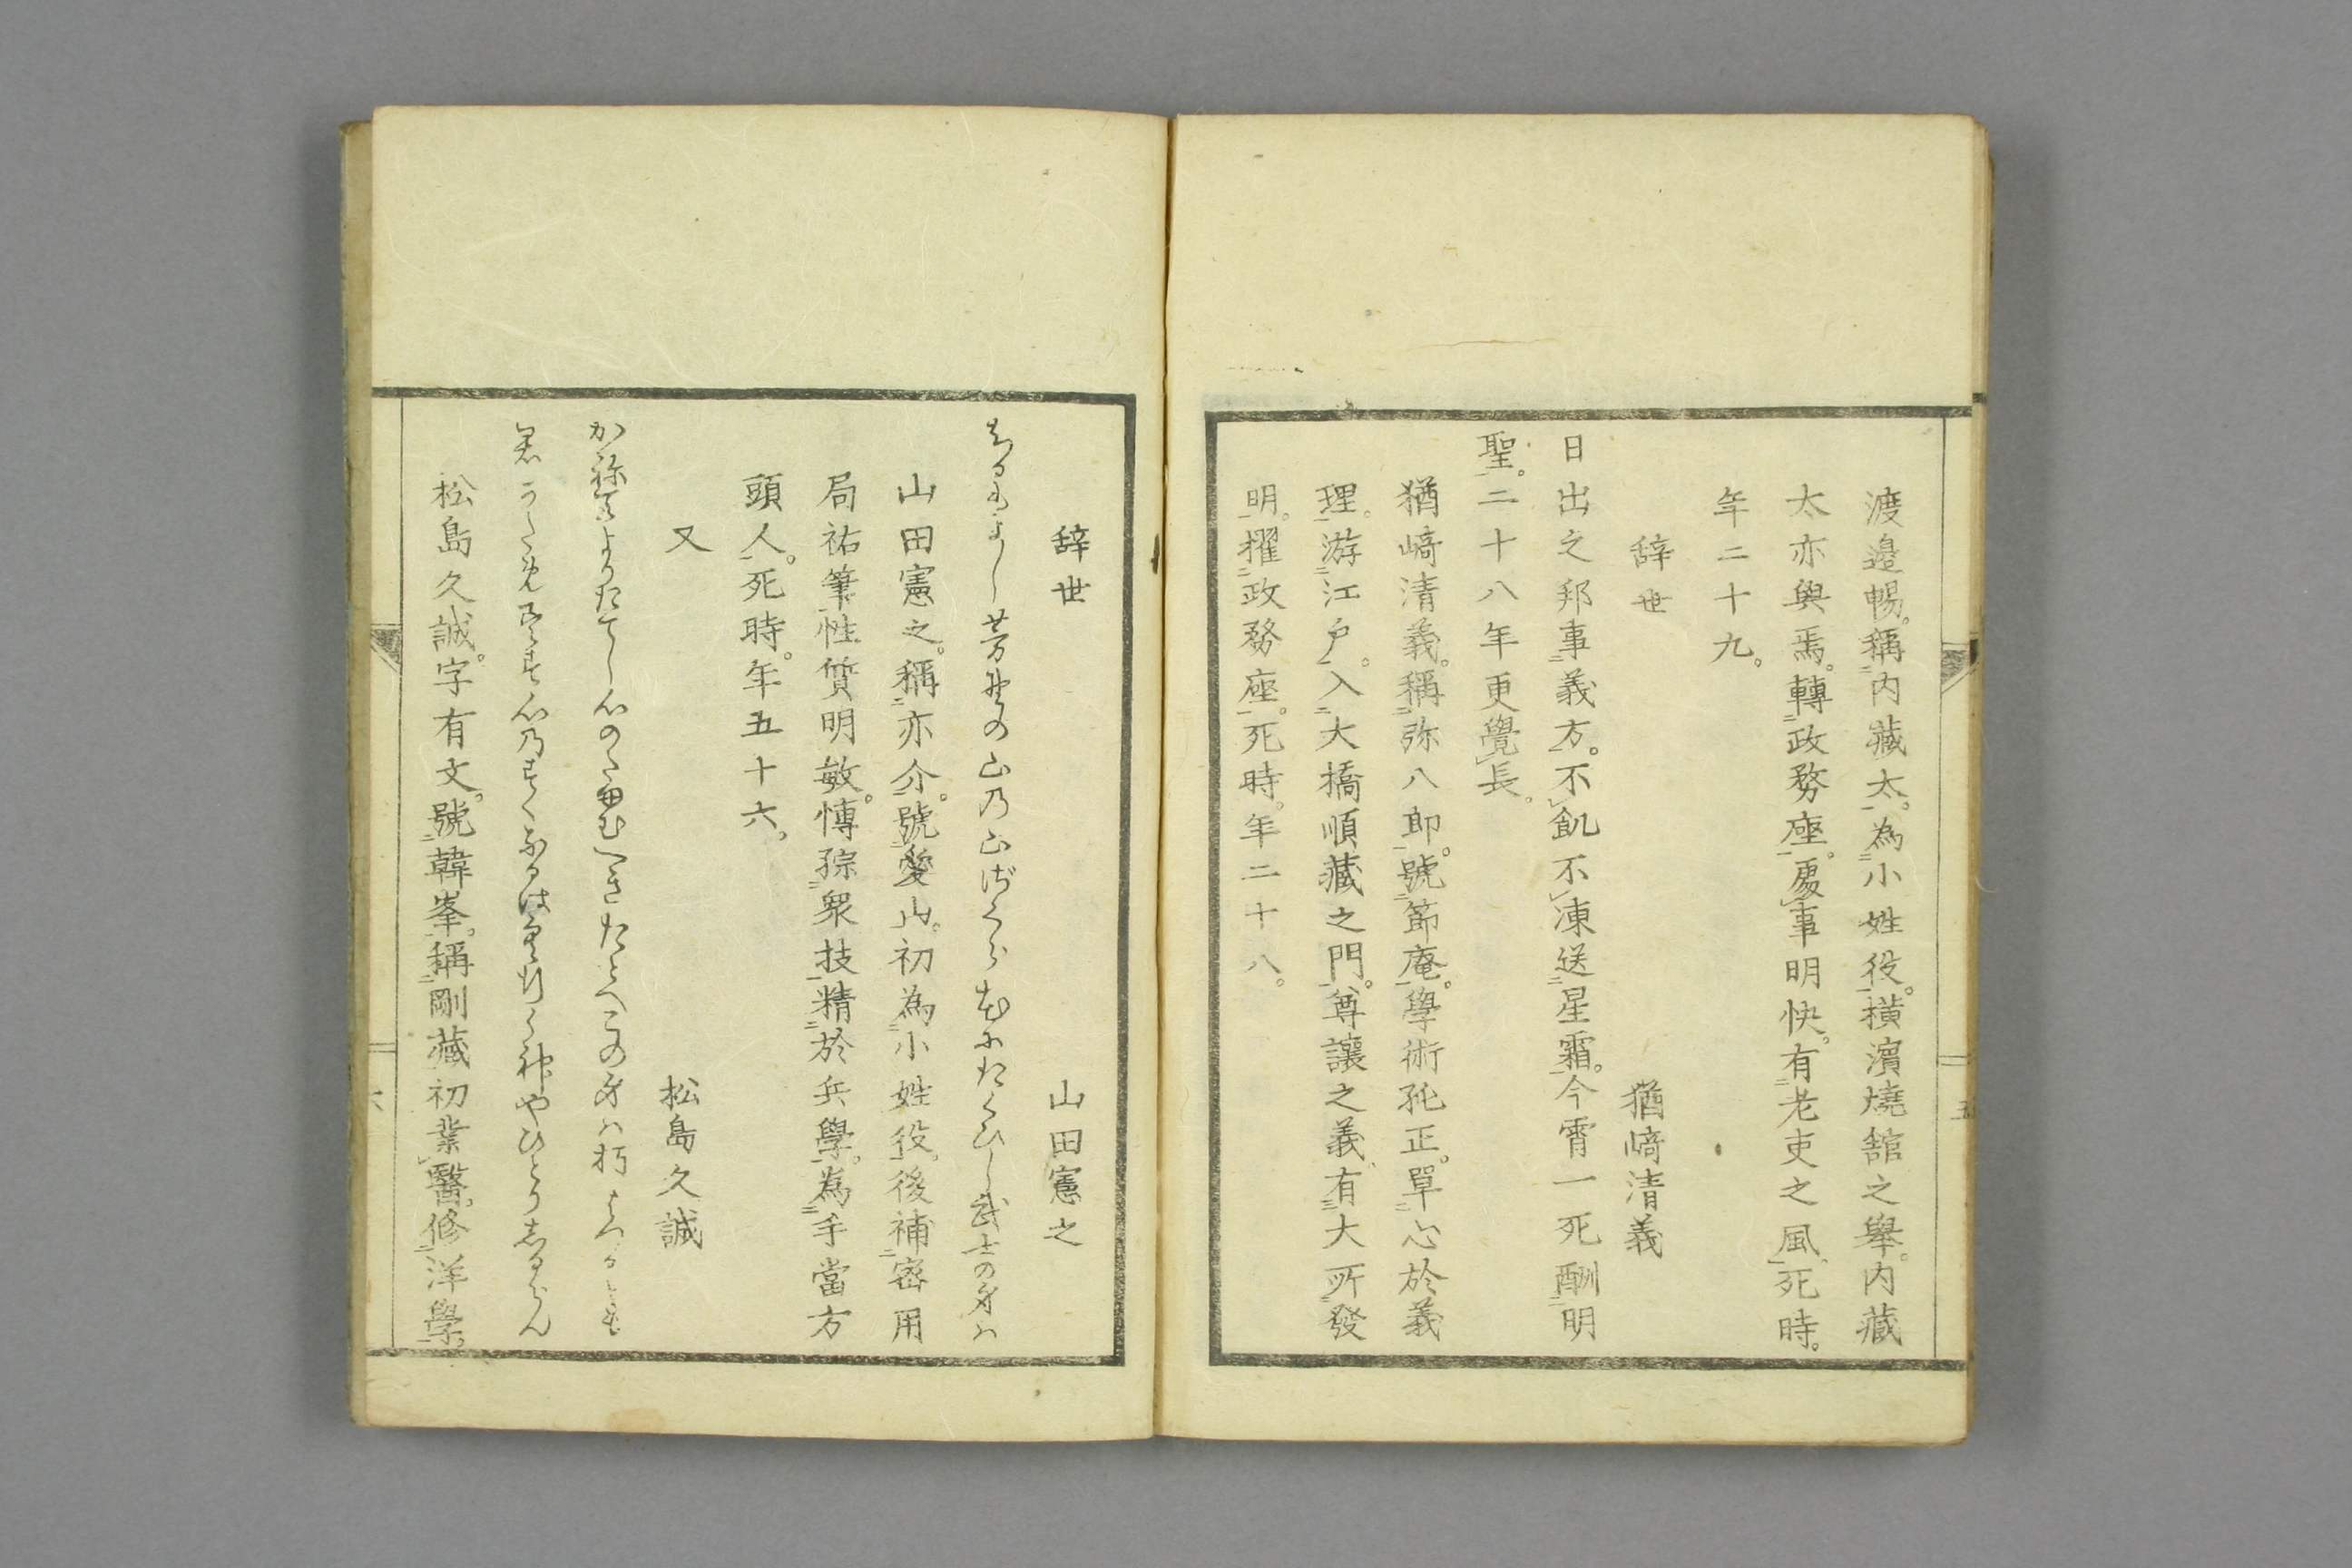 渡邉暢。稱内藏太。為小姓役。横濵燒舘之舉。内藏
太亦與焉。轉政務座。處事明快。有老吏之風、死時。
年二十九。
辞世 猶﨑清義
日出之邦事義方。不飢不凍送星霜。今霄一死酬明
聖。二十八年更覺長。
猶﨑清義。稱弥八郎。號節庵。學術純正。單心於義
理。游江戸。入大橋順藏之門。尊讓之義、有大所發
明。擢政務座。死時。年二十八。
辞世 山田憲之
山の山さくら花にたくひし武士の身ハ
山田憲之。稱亦介。號愛山。初為小姓役。後補密用
局祐筆。性質明敏。慱綜衆技精於兵學。為手當方
頭人。死時。年五十六。
又 松島久誠
かねてよりたてし心のたゆむへきたとへこの身ハ朽
神やひとりしるらん
松島久誠。字有文。號韓峯。稱剛藏初業醫。修洋學。
五
六